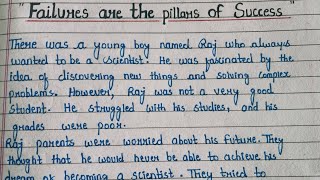 "Failures are the pillars of Success"
There was a young boy named Raj who always
wanted to be a scientist. He was fascinated by the
idea of discovering new things and solving complex
problems. However, Raj was not a very good
student. He struggled with his studies, and his
grades were poor.
Raj parents were worried about his future. They
thought that he would never be able to achieve his
dream of becoming a scientist. They tried to